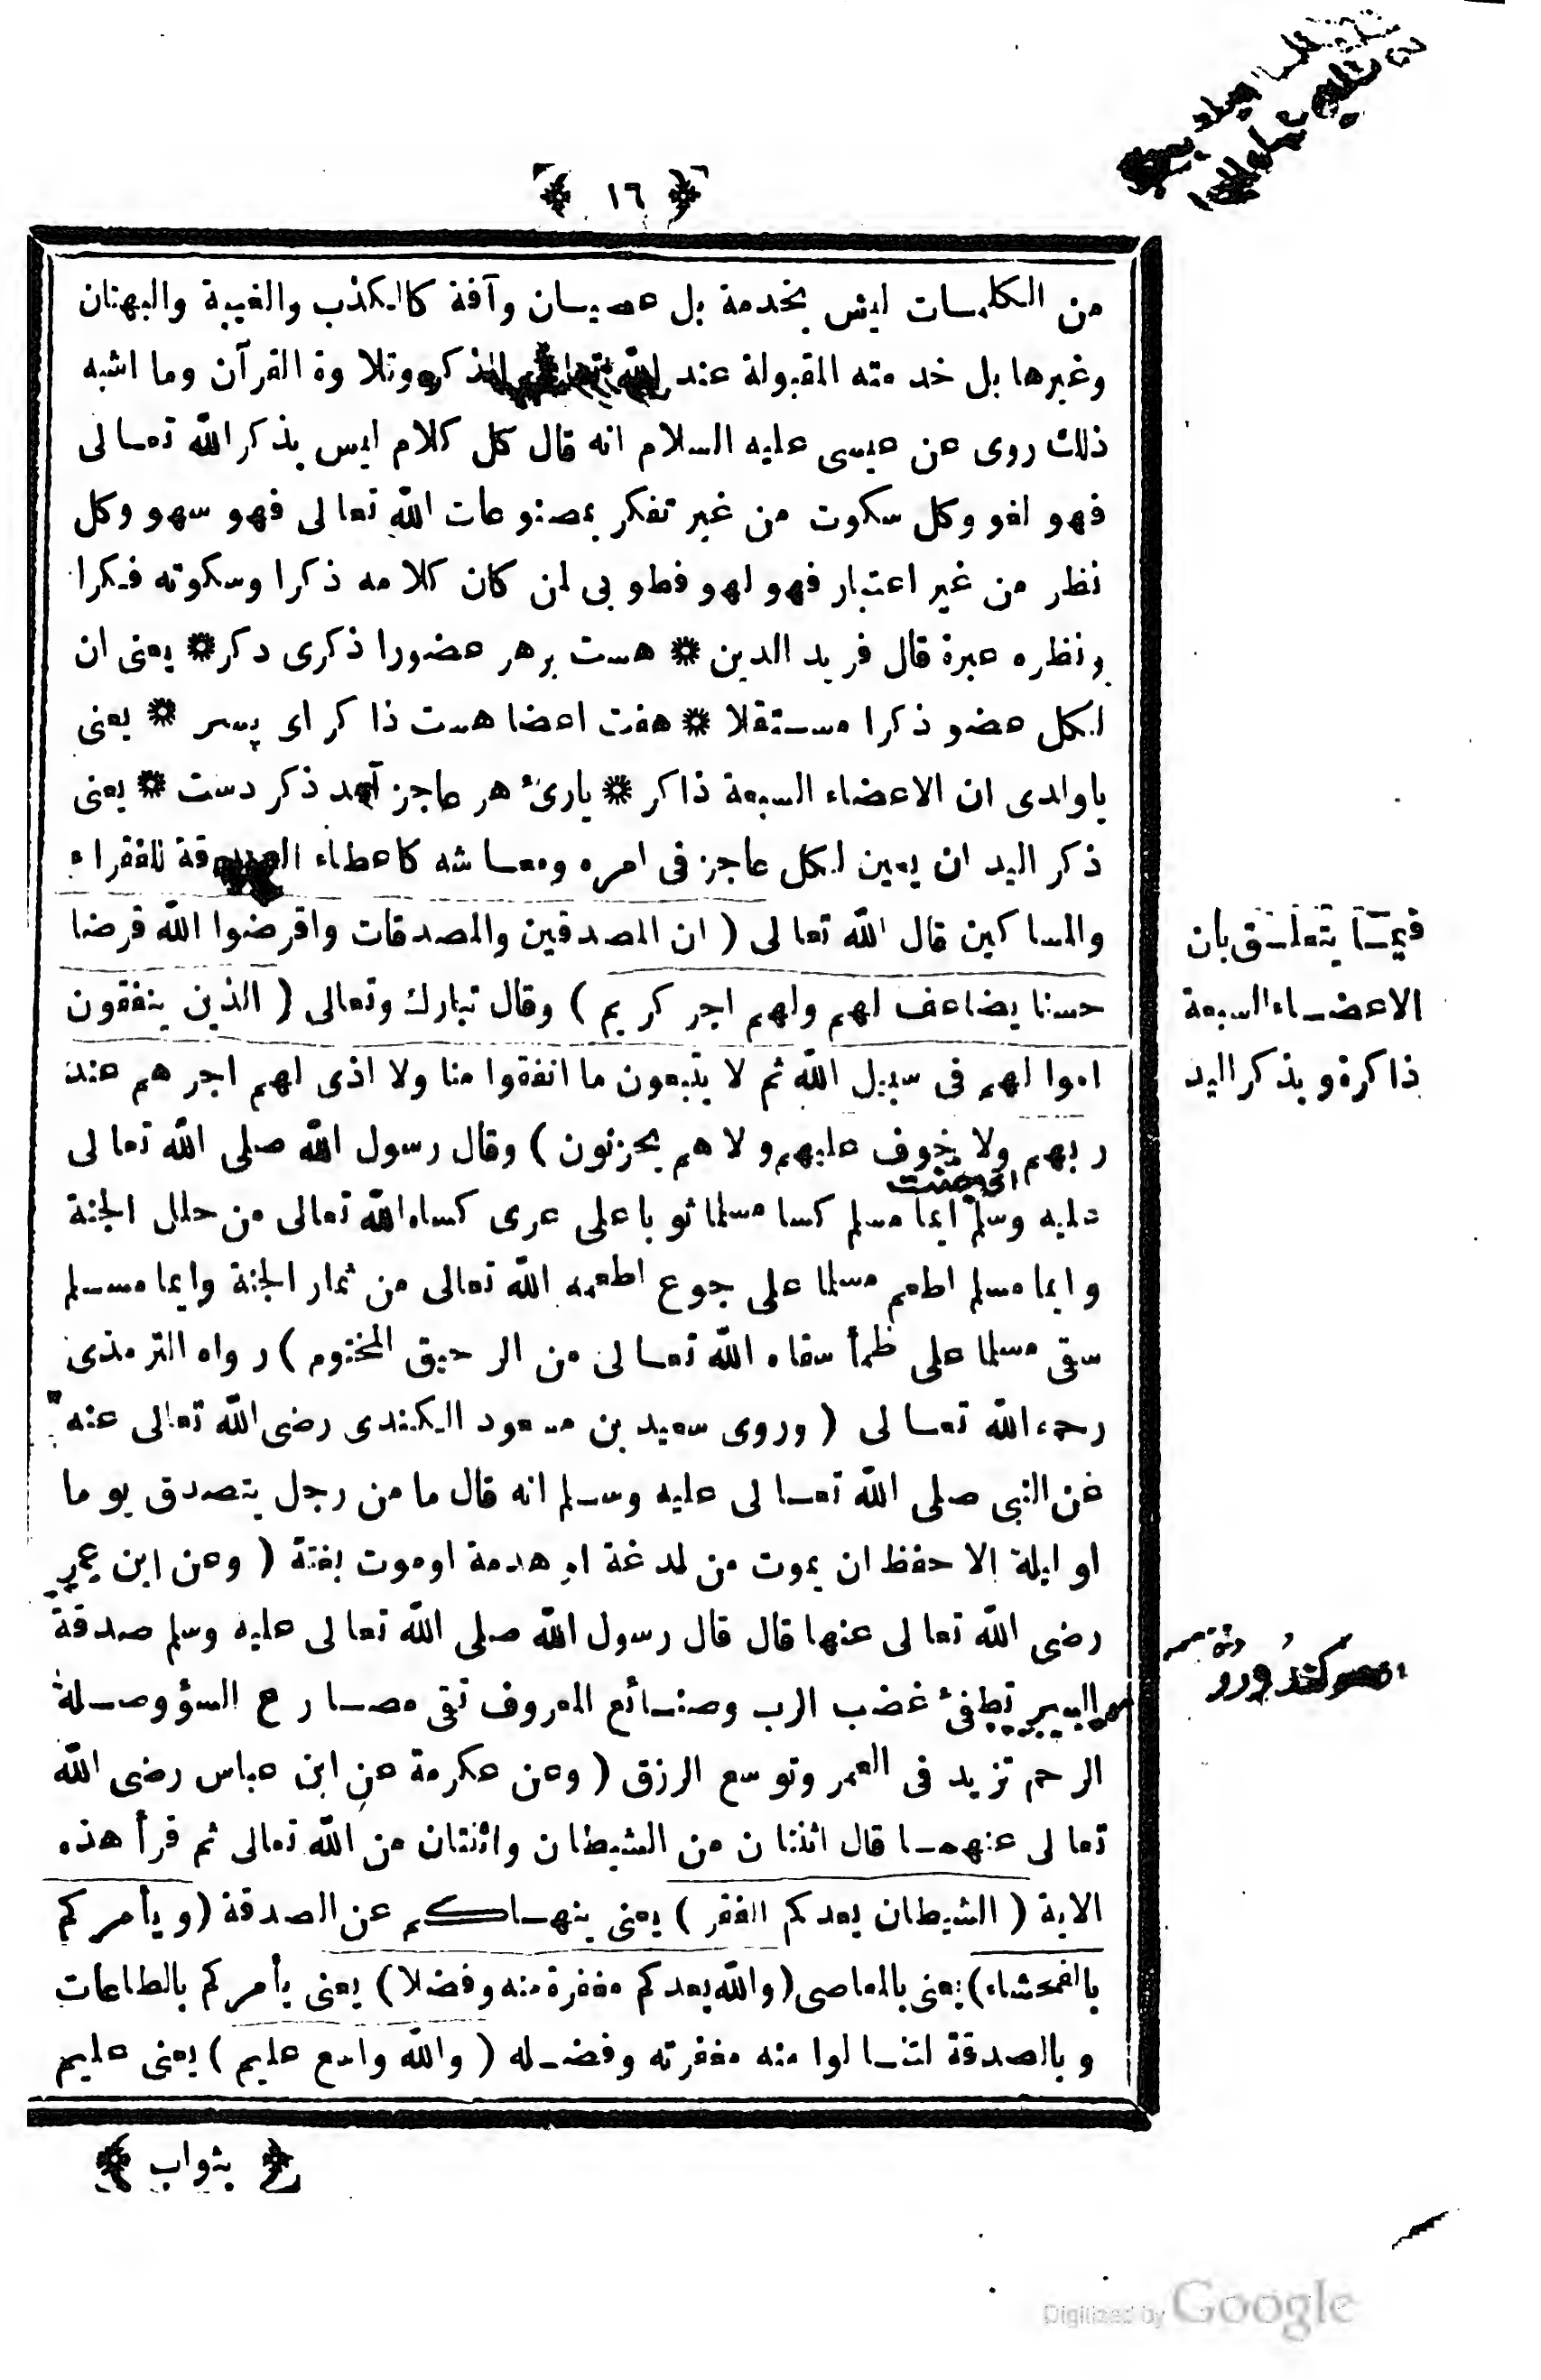 ﴿ ١٦ ﴾
من الكلمات ليس بخدمة بل عصيان وآفة كالكذب والغيبة والبهتان
وغيرها بل خدمته المقبولة عند الله تعالى الذكر وتلاوة القرآن وما اشبه
ذلك روى عن عيسى عليه السلام انه قال كل كلام ليس بذكر الله تعالى
فهو لغو وكل سكوت من غير تفكر بمصنوعات الله تعالى فهو سهو وكل
نظر من غير اعتبار فهو لهو فطوبى لمن كان كلامه ذكرا وسكوته فكرا
ونظره عبرة قال فريد الدين * هست برهر عضورا ذكرى دكر * يعنى ان
لكل عضو ذكرا مستقلا * هفت اعضا هست ذاكر اى پسر * يعنى
ياولدى ان الاعضاء السبعة ذاكر * يارئ هر عاجز آمد ذكر دست * يعنى
ذكر اليد ان يعين لكل عاجز فى امره ومعاشه كاعطاء الصدقة للفقراء
والمساكين قال الله تعالى ( ان المصدقين والمصدقات واقرضوا الله قرضا
حسنا يضاعف لهم ولهم اجر كريم ) وقال تبارك وتعالى ( الذين ينفقون
اموالهم فى سبيل الله ثم لا يتبعون ما انفقوا منا ولا اذى لهم اجرهم عند
ربهم ولا خوف عليهم ولا هم يحزنون ) وقال رسول الله صلى الله تعالى
عليه وسلم ايما مسلم كسا مسلما ثوبا على عرى كساه الله تعالى من حلل الجنة
وايما مسلم اطعم مسلما على جوع اطعمه الله تعالى من ثمار الجنة وايما مسلم
سقى مسلما على ظمأ سقاه الله تعالى من الرحيق المختوم ) رواه الترمذى
رحمه الله تعالى ( وروى سعيد بن مسعود الكندى رضى الله تعالى عنه
عن النبى صلى الله تعالى عليه وسلم انه قال ما من رجل يتصدق يوما
او ليلة الا حفظ ان يموت من لدغة او هدمة اوموت بغتة ( وعن ابن عمر
رضى الله تعالى عنهما قال قال رسول الله صلى الله تعالى عليه وسلم صدقة
السر تطفئ غضب الرب وصنائع المعروف تقى مصارع السؤ وصلة
الرحم تزيد فى العمر وتوسع الرزق ( وعن عكرمة عن ابن عباس رضى الله
تعالى عنهما قال اثنتان من الشيطان واثنتان من الله تعالى ثم قرأ هذه
الاية ( الشيطان يعدكم الفقر ) يعنى ينهاكم عن الصدقة ( ويأمركم
بالفحشاء ) يعنى بالمعاصى ( والله يعدكم مغفرة منه وفضلا ) يعنى يأمركم بالطاعات
وبالصدقة لتنالوا منه مغفرته وفضله ( والله واسع عليم ) يعنى عليم
﴿ بثواب ﴾
فيما يتعلق بان
الاعضاء السبعة
ذاكرة و بذكر اليد
Digitized by Google